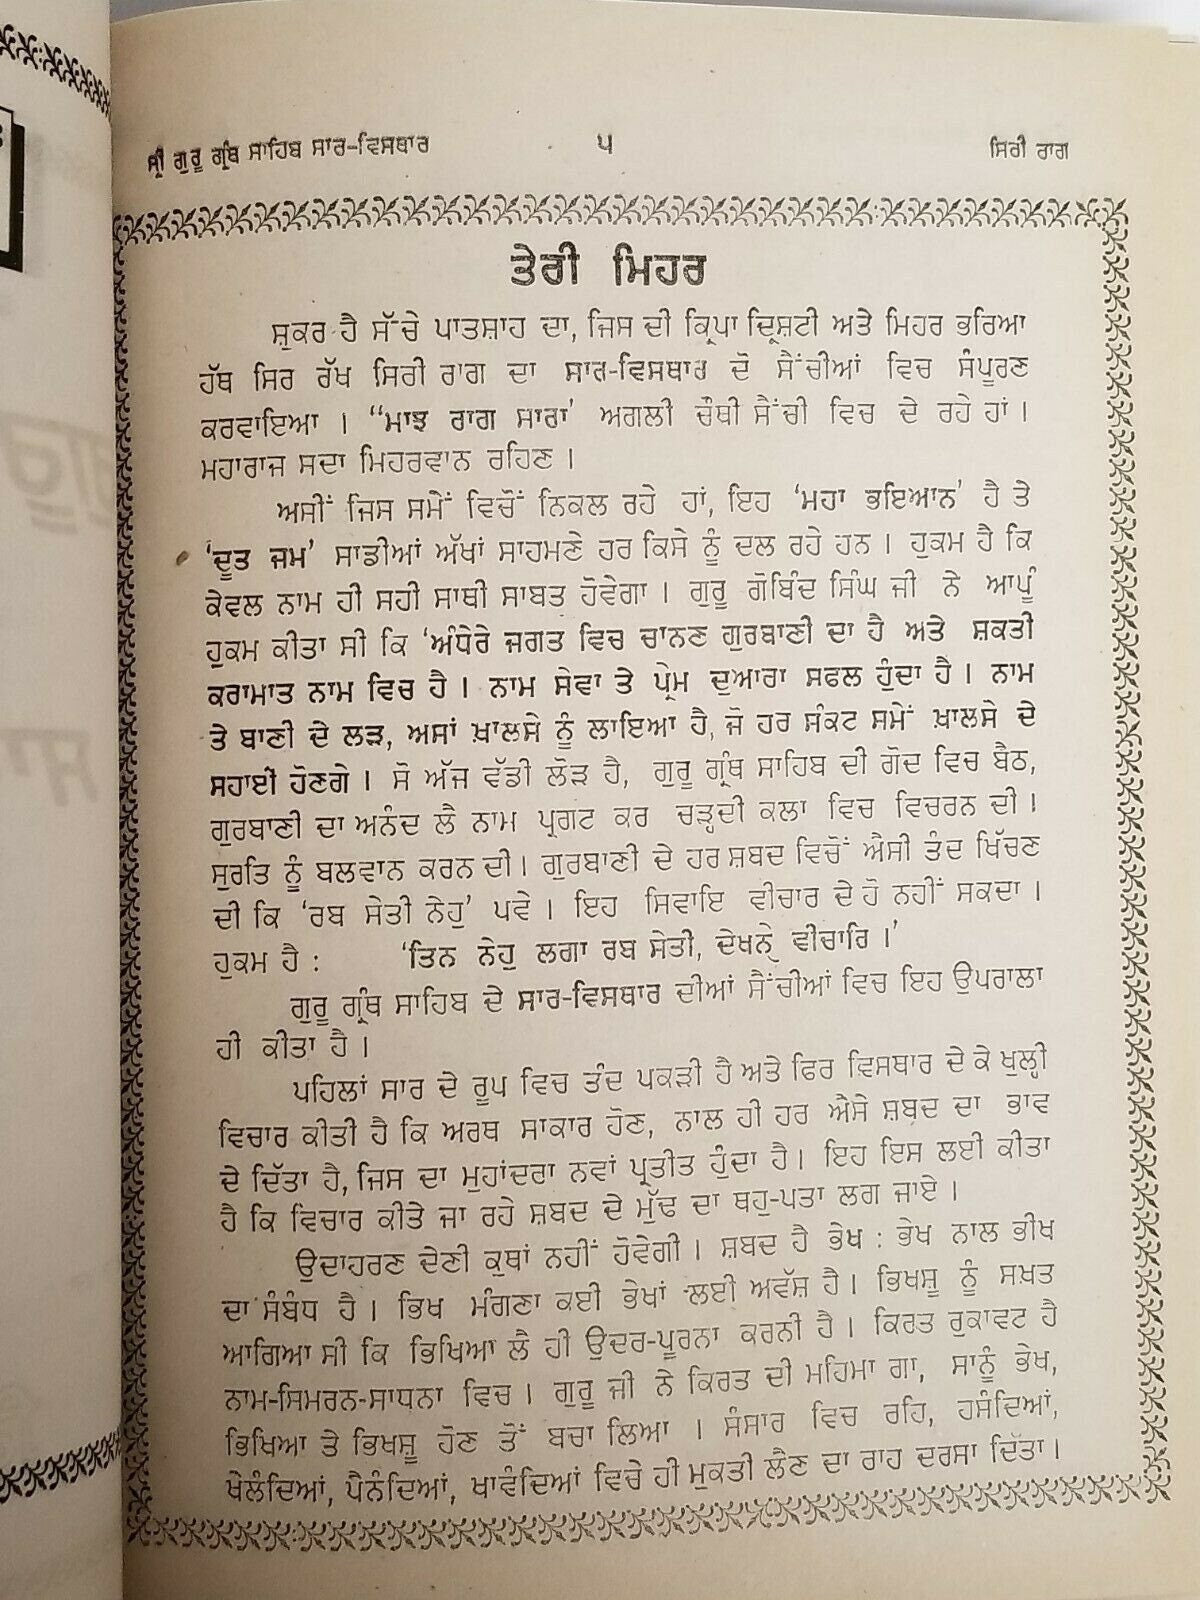 ਸ੍ਰੀ ਗੁਰੂ ਗ੍ਰੰਥ ਸਾਹਿਬ ਸਾਰ-ਵਿਸਥਾਰ ੫ ਸਿਰੀ ਰਾਗ
ਤੇਰੀ ਮਿਹਰ
ਸ਼ੁਕਰ ਹੈ ਸੱਚੇ ਪਾਤਸ਼ਾਹ ਦਾ, ਜਿਸ ਦੀ ਕ੍ਰਿਪਾ ਦ੍ਰਿਸ਼ਟੀ ਅਤੇ ਮਿਹਰ ਭਰਿਆ
ਹੱਥ ਸਿਰ ਰੱਖ ਸਿਰੀ ਰਾਗ ਦਾ ਸਾਰ-ਵਿਸਥਾਰ ਦੋ ਸੈਂਚੀਆਂ ਵਿਚ ਸੰਪੂਰਣ
ਕਰਵਾਇਆ । “ਮਾਝ ਰਾਗ ਸਾਰਾ’ ਅਗਲੀ ਚੌਥੀ ਸੈਂਚੀ ਵਿਚ ਦੇ ਰਹੇ ਹਾਂ ।
ਮਹਾਰਾਜ ਸਦਾ ਮਿਹਰਵਾਨ ਰਹਿਣ ।
ਅਸੀਂ ਜਿਸ ਸਮੇਂ ਵਿਚੋਂ ਨਿਕਲ ਰਹੇ ਹਾਂ, ਇਹ ‘ਮਹਾ ਭਇਆਨ’ ਹੈ ਤੇ
‘ਦੂਤ ਜਮ’ ਸਾਡੀਆਂ ਅੱਖਾਂ ਸਾਹਮਣੇ ਹਰ ਕਿਸੇ ਨੂੰ ਦਲ ਰਹੇ ਹਨ । ਹੁਕਮ ਹੈ ਕਿ
ਕੇਵਲ ਨਾਮ ਹੀ ਸਹੀ ਸਾਥੀ ਸਾਬਤ ਹੋਵੇਗਾ । ਗੁਰੂ ਗੋਬਿੰਦ ਸਿੰਘ ਜੀ ਨੇ ਆਪੂੰ
ਹੁਕਮ ਕੀਤਾ ਸੀ ਕਿ ‘ਅੰਧੇਰੇ ਜਗਤ ਵਿਚ ਚਾਨਣ ਗੁਰਬਾਣੀ ਦਾ ਹੈ ਅਤੇ ਸ਼ਕਤੀ
ਕਰਾਮਾਤ ਨਾਮ ਵਿਚ ਹੈ । ਨਾਮ ਸੇਵਾ ਤੇ ਪ੍ਰੇਮ ਦੁਆਰਾ ਸਫਲ ਹੁੰਦਾ ਹੈ । ਨਾਮ
ਤੇ ਬਾਣੀ ਦੇ ਲੜ, ਅਸਾਂ ਖ਼ਾਲਸੇ ਨੂੰ ਲਾਇਆ ਹੈ, ਜੋ ਹਰ ਸੰਕਟ ਸਮੇਂ ਖ਼ਾਲਸੇ ਦੇ
ਸਹਾਈ ਹੋਣਗੇ । ਸੋ ਅੱਜ ਵੱਡੀ ਲੋੜ ਹੈ, ਗੁਰੂ ਗ੍ਰੰਥ ਸਾਹਿਬ ਦੀ ਗੋਦ ਵਿਚ ਬੈਠ,
ਗੁਰਬਾਣੀ ਦਾ ਅਨੰਦ ਲੈ ਨਾਮ ਪ੍ਰਗਟ ਕਰ ਚੜ੍ਹਦੀ ਕਲਾ ਵਿਚ ਵਿਚਰਨ ਦੀ ।
ਸੁਰਤਿ ਨੂੰ ਬਲਵਾਨ ਕਰਨ ਦੀ । ਗੁਰਬਾਣੀ ਦੇ ਹਰ ਸ਼ਬਦ ਵਿਚੋਂ ਐਸੀ ਤੰਦ ਖਿੱਚਣ
ਦੀ ਕਿ ‘ਰਬ ਸੇਤੀ ਨੇਹੁ’ ਪਵੇ । ਇਹ ਸਿਵਾਇ ਵੀਚਾਰ ਦੇ ਹੋ ਨਹੀਂ ਸਕਦਾ ।
ਹੁਕਮ ਹੈ : ‘ਤਿਨ ਨੇਹੁ ਲਗਾ ਰਬ ਸੇਤੀ, ਦੇਖਨ੍ਹੇ ਵੀਚਾਰਿ ।’
ਗੁਰੂ ਗ੍ਰੰਥ ਸਾਹਿਬ ਦੇ ਸਾਰ-ਵਿਸਥਾਰ ਦੀਆਂ ਸੈਂਚੀਆਂ ਵਿਚ ਇਹ ਉਪਰਾਲਾ
ਹੀ ਕੀਤਾ ਹੈ ।
ਪਹਿਲਾਂ ਸਾਰ ਦੇ ਰੂਪ ਵਿਚ ਤੰਦ ਪਕੜੀ ਹੈ ਅਤੇ ਫਿਰ ਵਿਸਥਾਰ ਦੇ ਕੇ ਖੁਲ੍ਹੀ
ਵਿਚਾਰ ਕੀਤੀ ਹੈ ਕਿ ਅਰਥ ਸਾਕਾਰ ਹੋਣ, ਨਾਲ ਹੀ ਹਰ ਐਸੇ ਸ਼ਬਦ ਦਾ ਭਾਵ
ਦੇ ਦਿੱਤਾ ਹੈ, ਜਿਸ ਦਾ ਮੁਹਾਂਦਰਾ ਨਵਾਂ ਪ੍ਰਤੀਤ ਹੁੰਦਾ ਹੈ । ਇਹ ਇਸ ਲਈ ਕੀਤਾ
ਹੈ ਕਿ ਵਿਚਾਰ ਕੀਤੇ ਜਾ ਰਹੇ ਸ਼ਬਦ ਦੇ ਮੁੱਢ ਦਾ ਥਹੁ-ਪਤਾ ਲਗ ਜਾਏ ।
ਉਦਾਹਰਣ ਦੇਣੀ ਕੁਥਾਂ ਨਹੀਂ ਹੋਵੇਗੀ । ਸ਼ਬਦ ਹੈ ਭੇਖ : ਭੇਖ ਨਾਲ ਭੀਖ
ਦਾ ਸੰਬੰਧ ਹੈ । ਭਿਖ ਮੰਗਣਾ ਕਈ ਭੇਖਾਂ ਲਈ ਅਵੱਸ਼ ਹੈ । ਭਿਖਸ਼ੂ ਨੂੰ ਸਖ਼ਤ
ਆਗਿਆ ਸੀ ਕਿ ਭਿਖਿਆ ਲੈ ਹੀ ਉਦਰ-ਪੂਰਨਾ ਕਰਨੀ ਹੈ । ਕਿਰਤ ਰੁਕਾਵਟ ਹੈ
ਨਾਮ-ਸਿਮਰਨ-ਸਾਧਨਾ ਵਿਚ । ਗੁਰੂ ਜੀ ਨੇ ਕਿਰਤ ਦੀ ਮਹਿਮਾ ਗਾ, ਸਾਨੂੰ ਭੇਖ,
ਭਿਖਿਆ ਤੇ ਭਿਖਸ਼ੂ ਹੋਣ ਤੋਂ ਬਚਾ ਲਿਆ । ਸੰਸਾਰ ਵਿਚ ਰਹਿ, ਹਸੰਦਿਆਂ,
ਖੇਲੰਦਿਆਂ, ਪੈਨੰਦਿਆਂ, ਖਾਵੰਦਿਆਂ ਵਿਚੇ ਹੀ ਮੁਕਤੀ ਲੈਣ ਦਾ ਰਾਹ ਦਰਸਾ ਦਿੱਤਾ ।